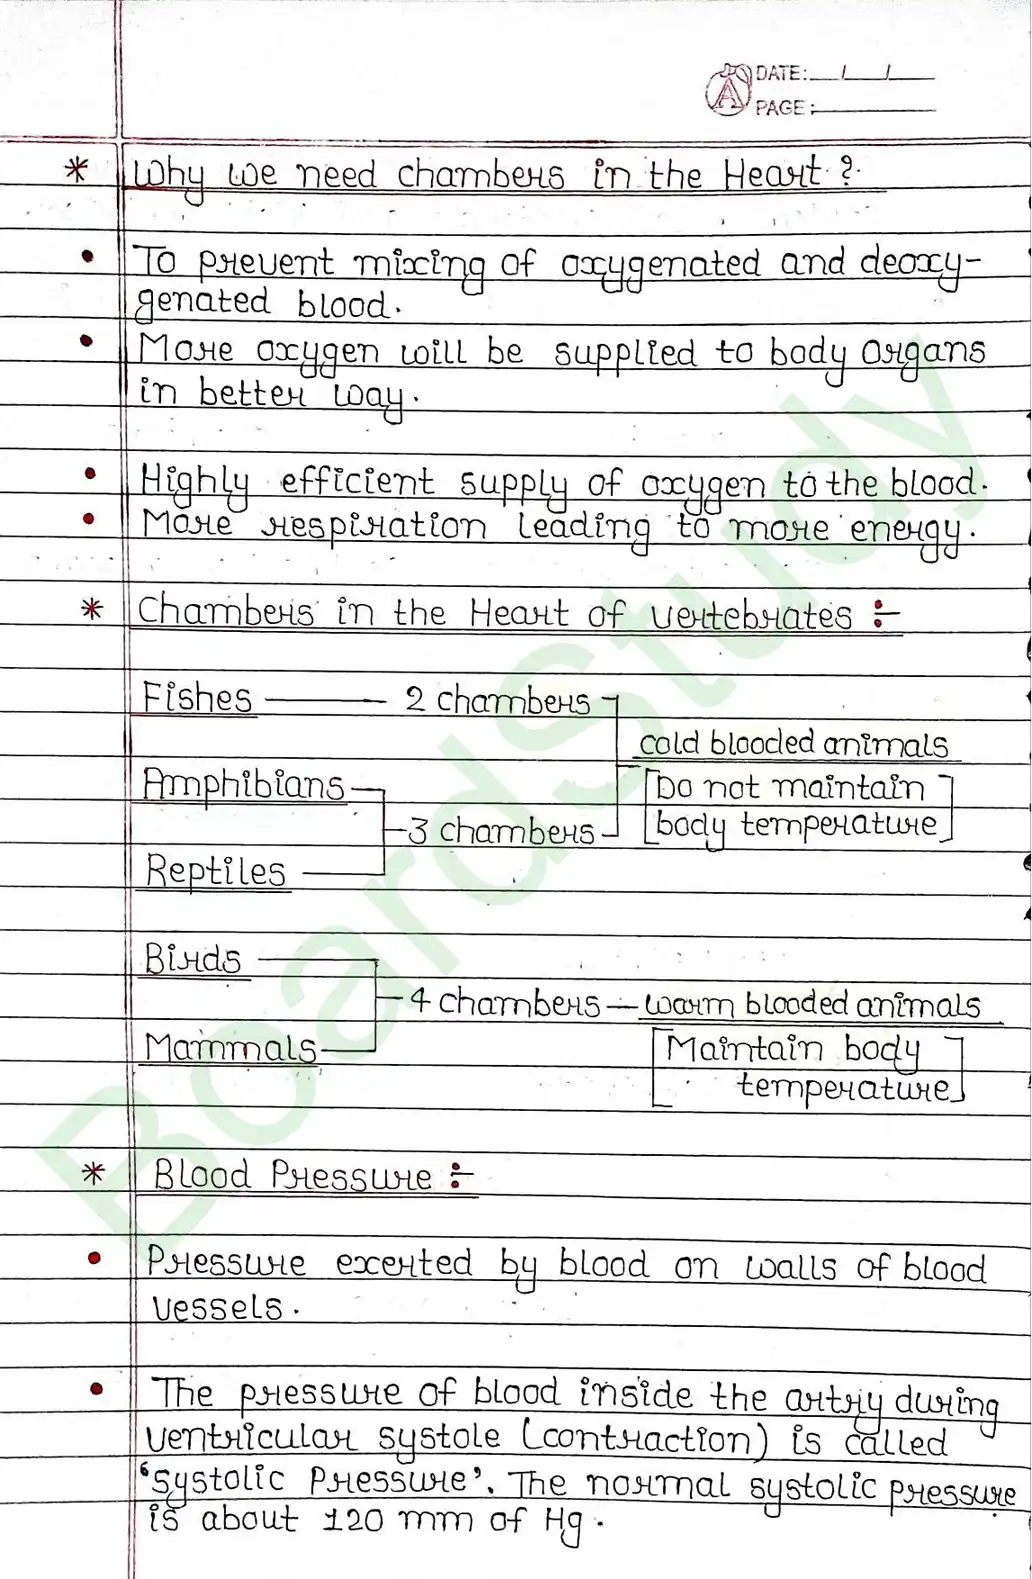 DATE: / /
PAGE:
* Why we need chambers in the Heart?
• To prevent mixing of oxygenated and deoxy-
genated blood.
• More oxygen will be supplied to body organs
in better way.
• Highly efficient supply of oxygen to the blood.
• More respiration leading to more energy.
* Chambers in the Heart of vertebrates :-
Fishes — 2 chambers
cold blooded animals
Amphibians
[Do not maintain
3 chambers
body temperature]
Reptiles
Birds
4 chambers — warm blooded animals
Mammals
[Maintain body
temperature]
* Blood Pressure :-
• Pressure exerted by blood on walls of blood
vessels.
• The pressure of blood inside the artry during
ventricular systole (contraction) is called
'systolic Pressure'. The normal systolic pressure
is about 120 mm of Hg.
BoardStudy